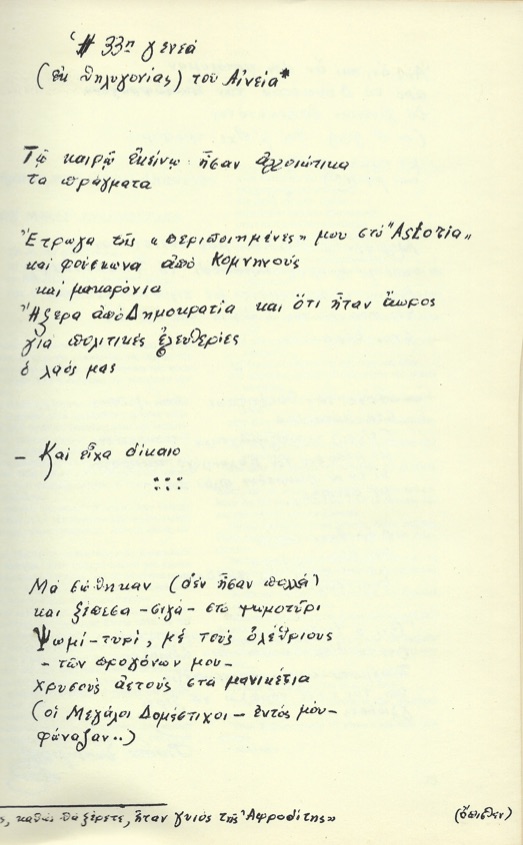 Ἡ 33η γενεά
(ἐκ θηλυγονίας) του Αἰνεία*
Τῷ καιρῷ ἐκείνῳ ἦσαν ἀλλοιώτικα
τα πράγματα
Ἔτρωγα τῆς «περιποιημένες» μου στό "Astoria"
και φούσκωνα ἀπό Κομνηνούς
και μακαρόνια
Ἤξερα ἀπό Δημοκρατία και ὅτι ἦταν ἄωρος
για πολιτικές ἐλευθερίες
ὁ λαός μας
– Και εἶχα δίκαιο
Μά σώθηκαν (δέν ἦσαν πολλά)
και ξέπεσα – σιγά – στο ψωμοτύρι
Ψωμί-τυρί, μέ τους ὀλέθριους
– τῶν προγόνων μου –
χρυσούς ἀετούς στά μανικέτια
(οἱ Μεγάλοι Δομέστιχοι – ἐντός μου –
φώναζαν..)
ς, καθώς θά ξέρετε, ἦταν γυιός τῆς Ἀφροδίτης»
(ὄπισθεν)